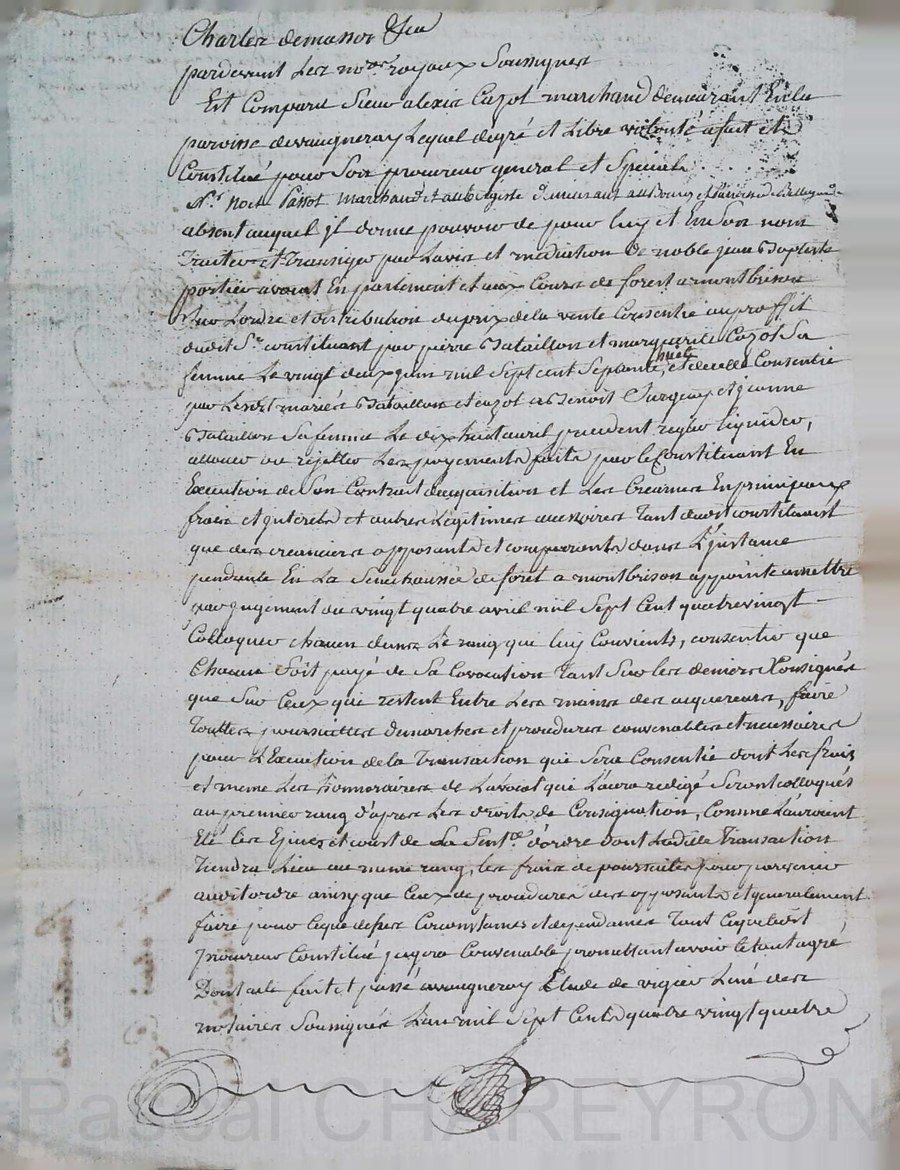 Charles demasson
pardevant Les no.res royaux Soussignes
Est Comparu Sieur alexis Cazot marchand demeurant En la
paroisse devaugneray Lequel degré et Libre volonté afait et
Constitué pour Son procureur general et Special
Noel Passot marchand et aubergiste demeurant au Bourg et Paroisse de
absent auquel jl donne pouvoir de pour luy et En Son nom
Traiter et Transiger par Lavis et mediation De noble jean Baptiste
portier avocat En parlement et aux Cours de forest a montbrison
Sur Lordre et distribution duprix de la vente Consentie au proffit
dudit Sr. constituant par pierre Bataillon et marguerite Cazot Sa
femme Le vingt deux juin mil Sept cent Septante huit, et de celle Consentie
par Lesdits mariés Bataillon et cazot a Benoit et jeanne
Bataillon Sa femme Le dix huit avril precedent regler liquider,
allouer ou rejetter Les payements faits par le Constituant En
Execution de Son Contrat dacquisition et Les Creances En principaux
frais et jnterets et autres Légitimes accessoires Tant dudit constituant
que des creanciers opposants et comparants dans L'jnstance
pendente En La Senechaussée de foret a montbrison appointée amettre
par jugement du vingt quatre avril mil Sept Cent quatrevingt
Colloquer chacun dans Le rang qui luy Convients, consentir que
Chacun Soit payé de Sa Tant Sur les deniers Consignés
que Sur Ceux qui restent Entre Les mains des acquereurs, faire
Touttes poursuittes demarches et procedures convenables et necessaires
pour L'Execution de la Transaction qui Sera Consentie dont Les frais
et meme Les honnoraires de Lavocat qui L'aura redigé Seront colloqués
au premier rang d'apres Les droits de Consignation, Comme L'auroient
Eté les Epices et cout de La Sent.ce d'ordre dont Ladite Transaction
Tiendra Lieu au meme rang, les frais de poursuites pour parvenir
audit ordre ainsy que Ceux de procedures des opposants et generalement
faire pour Ce que dessus Circonstances et dependances Tout Ce que ledit
procureur Constitué jugera Convenable promettant avoir le tout agré
Dont acte fait et passé avaugneray Etude de vigier Luné des
notaires Soussignés L'an mil Sept Cents quatre vingt quatre
Pascal CHAREYRON